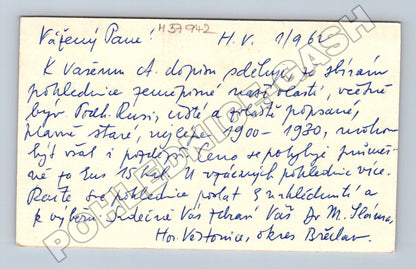 H37942
Vážený Pane! H.V. 1/9 62
K Vašemu ct. dopisu sděluji, že sbírám
pohlednice zeměpisné naší vlasti, včetně
býv Podk. Rusi, čisté a zvlášti popsané,
hlavně staré, nejlépe 1900-1930, mohou
být však i pozdější. Cena se pohybuje průměr-
ně za kus 10 hal. U vzácných pohlednic více.
Račte pohlednice poslat k nahlédnutí a
k výběru. Srdečně Vás zdraví Váš Dr M.
Hor. Věstonice, okres Břeclav.
POHLEDNICE